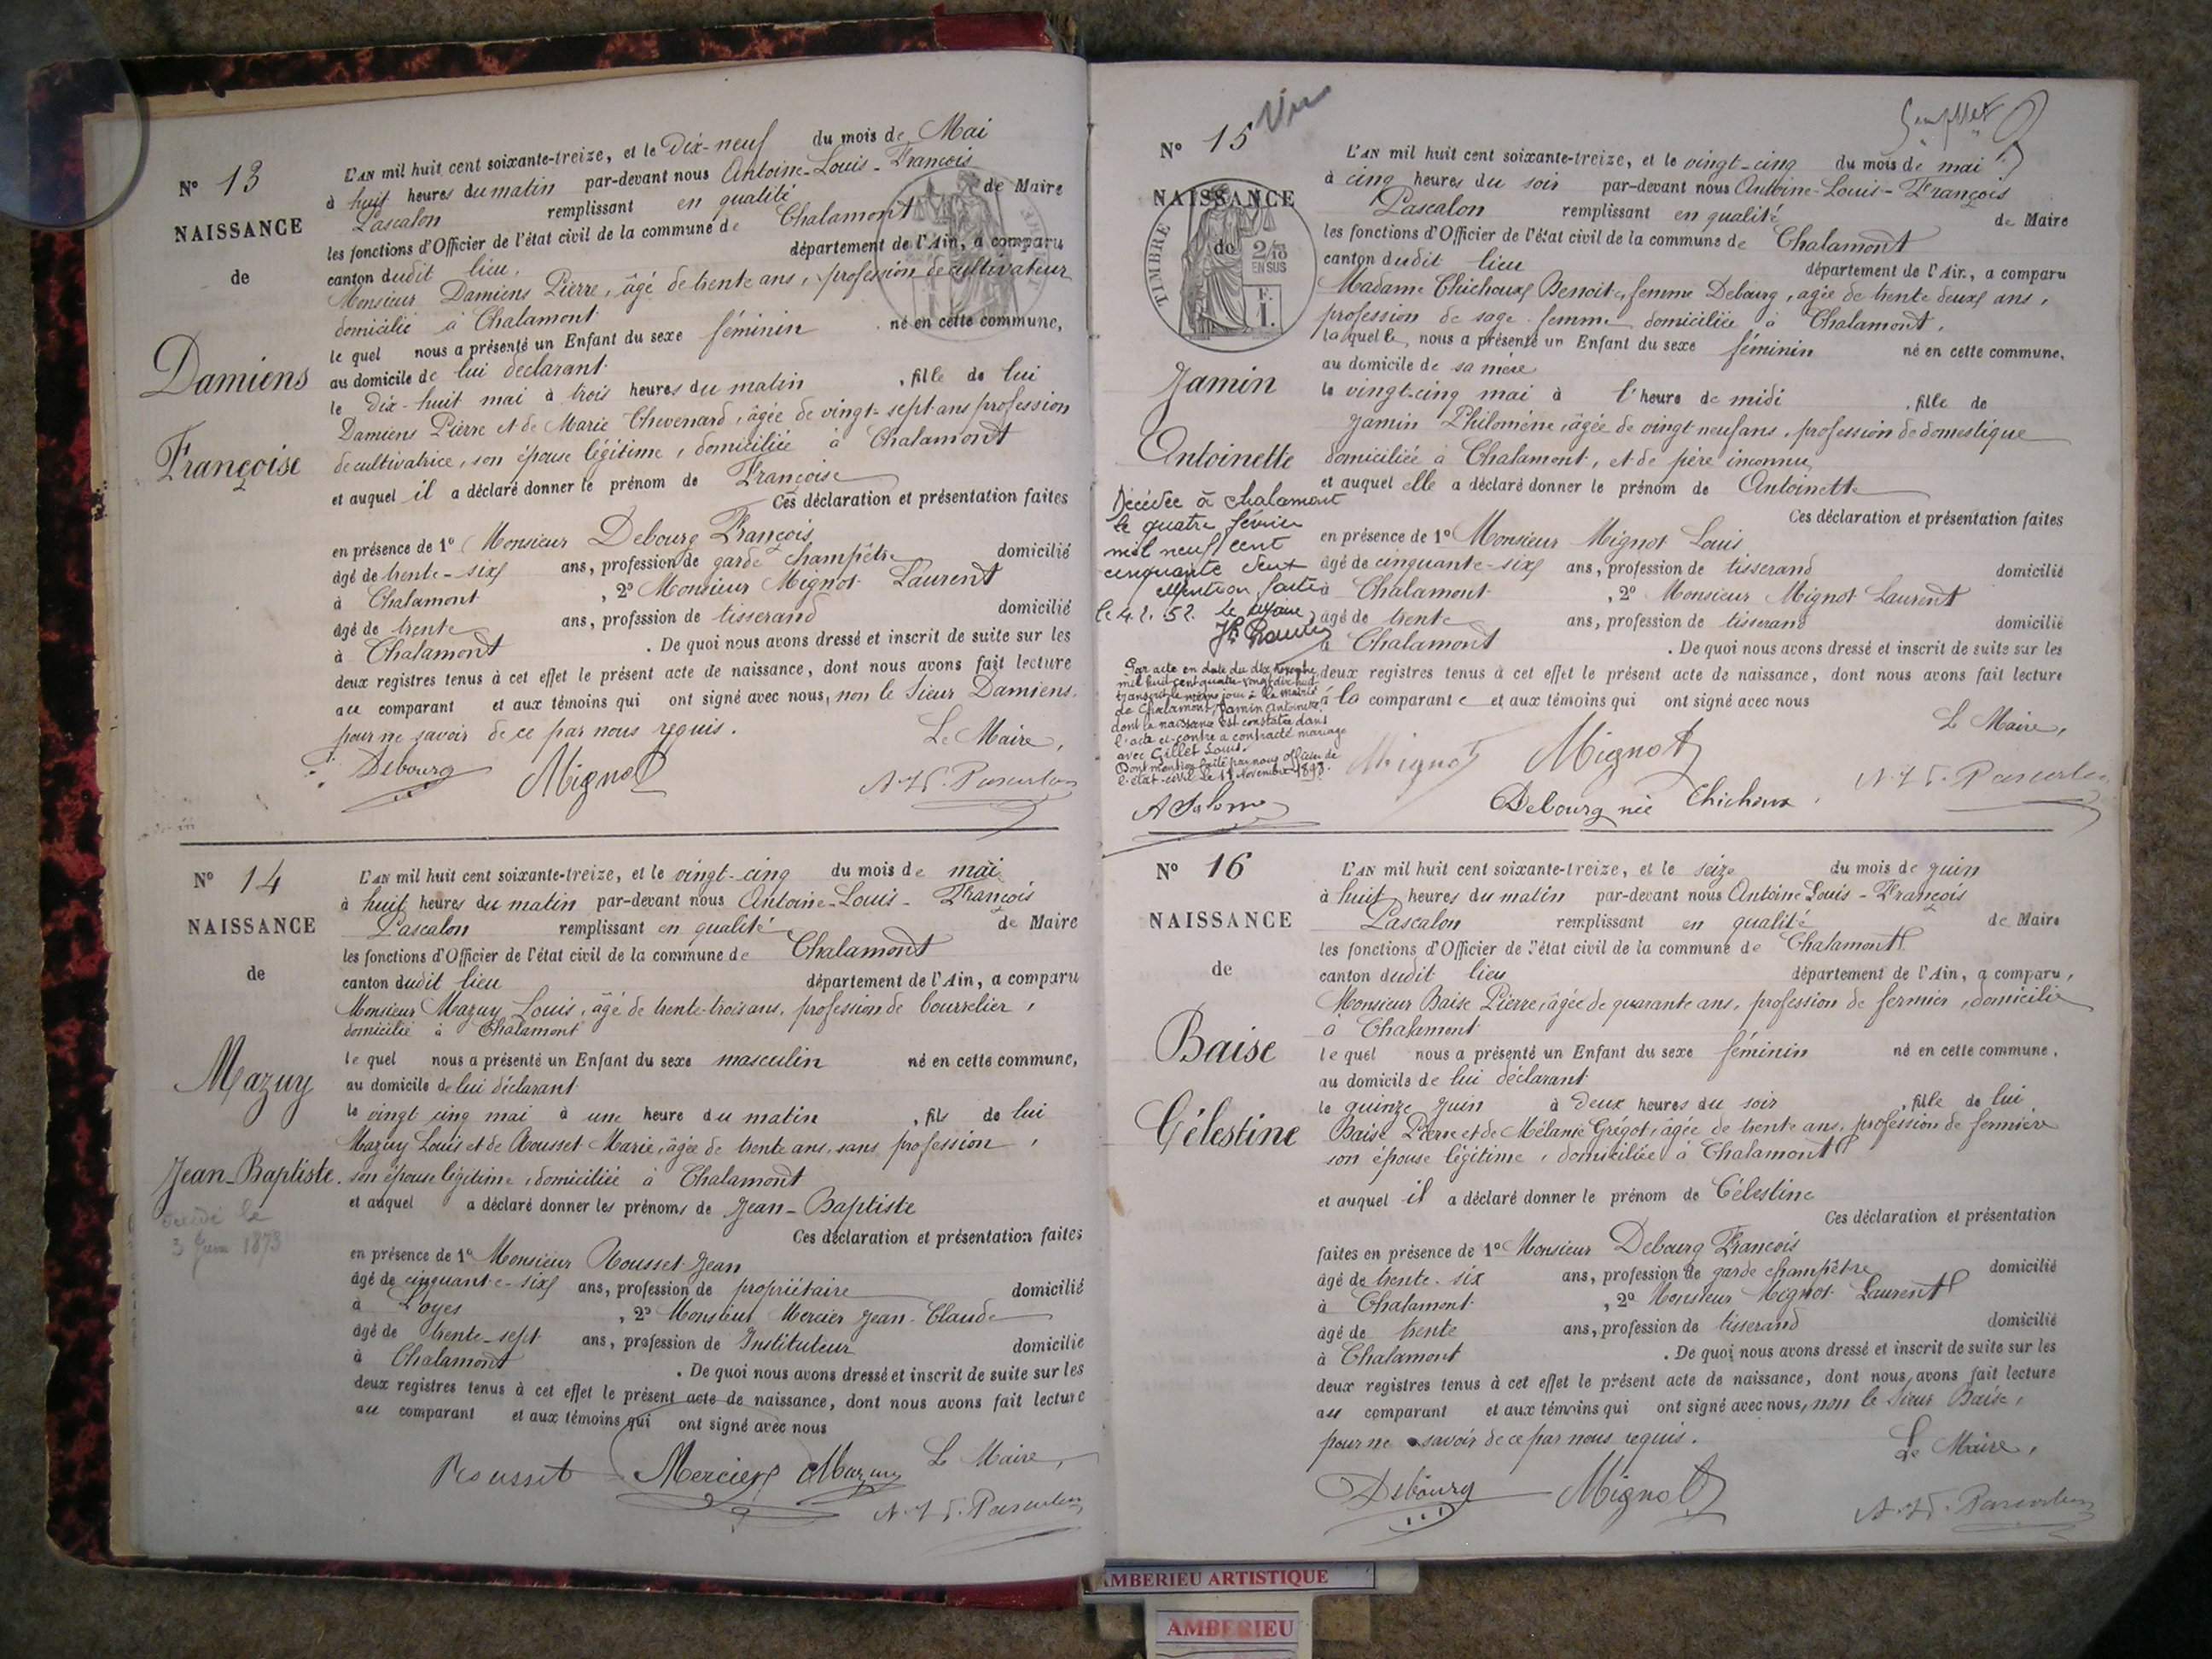 N° 13
NAISSANCE
de
Damiens
Françoise
L'AN mil huit cent soixante-treize, et le Dix-neuf du mois de Mai
à huit heures du matin par-devant nous Antoine-Louis-François
Pascalon remplissant en qualité de Maire
les fonctions d'Officier de l'état civil de la commune de Chalamont
canton dudit lieu, département de l'Ain, a comparu
Monsieur Damiens Pierre, âgé de trente ans, profession de cultivateur
domicilié à Chalamont
le quel nous a présenté un Enfant du sexe féminin né en cette commune,
au domicile de lui déclarant
le dix-huit mai à trois heures du matin, fille de lui
Damiens Pierre et de Marie Chevenard, âgée de vingt-sept ans profession
de cultivatrice, son épouse légitime, domiciliée à Chalamont
et auquel il a déclaré donner le prénom de Françoise
Ces déclaration et présentation faites
en présence de 1° Monsieur Debourg François
âgé de trente-six ans, profession de garde champêtre domicilié
à Chalamont, 2° Monsieur Mignot Laurent
âgé de trente ans, profession de tisserand domicilié
à Chalamont. De quoi nous avons dressé et inscrit de suite sur les
deux registres tenus à cet effet le présent acte de naissance, dont nous avons fait lecture
au comparant et aux témoins qui ont signé avec nous, non le Sieur Damiens,
pour ne savoir de ce par nous requis.
Le Maire,
Debourg Mignot
N° 14
NAISSANCE
de
Mazuy
Jean-Baptiste.
décédé le
3 Juin 1873
L'AN mil huit cent soixante-treize, et le vingt-cinq du mois de mai
à huit heures du matin par-devant nous Antoine-Louis-François
Pascalon remplissant en qualité de Maire
les fonctions d'Officier de l'état civil de la commune de Chalamont
canton dudit lieu département de l'Ain, a comparu
Monsieur Mazuy Louis, âgé de trente-trois ans, profession de bourrelier,
domicilié à Chalamont
le quel nous a présenté un Enfant du sexe masculin né en cette commune,
au domicile de lui déclarant
le vingt cinq mai à une heure du matin, fils de lui
Mazuy Louis et de Rousset Marie, âgée de trente ans, sans profession,
son épouse légitime, domiciliée à Chalamont
et auquel a déclaré donner les prénoms de Jean-Baptiste
Ces déclaration et présentation faites
en présence de 1° Monsieur Rousset Jean
âgé de cinquante-six ans, profession de propriétaire domicilié
à Loyes, 2° Monsieur Mercier Jean-Claude
âgé de trente-sept ans, profession de Instituteur domicilié
à Chalamont. De quoi nous avons dressé et inscrit de suite sur les
deux registres tenus à cet effet le présent acte de naissance, dont nous avons fait lecture
au comparant et aux témoins qui ont signé avec nous
Le Maire,
Rousset Mercier Mazuy
N° 15
NAISSANCE
de
TIMBRE
2/10
EN SUS
F.
1.
Jamin
Antoinette
Décédée à Chalamont
le quatre février
mil neuf cent
cinquante deux
Mention faite
le 4.2.52. le Maire
Par acte en date du dix novembre
mil huit cent quatre vingt dix huit
transcrit le même jour à la mairie
de Chalamont, Jamin Antoinette
dont la naissance est constatée dans
l'acte ci-contre a contracté mariage
avec Gillet Louis.
Dont mention faite par nous officier de
l'état-civil le 11 Novembre 1898.
L'AN mil huit cent soixante-treize, et le vingt-cinq du mois de mai
à cinq heures du soir par-devant nous Antoine-Louis-François
Pascalon remplissant en qualité de Maire
les fonctions d'Officier de l'état civil de la commune de Chalamont
canton dudit lieu département de l'Ain, a comparu
Madame Chichoux Benoite, femme Debourg, agée de trente deux ans,
profession de sage-femme domiciliée à Chalamont,
laquelle, nous a présenté un Enfant du sexe féminin né en cette commune,
au domicile de sa mère
le vingt-cinq mai à l'heure de midi, fille de
Jamin Philomène, âgée de vingt neuf ans, profession de domestique
domiciliée à Chalamont, et de père inconnu
et auquel elle a déclaré donner le prénom de Antoinette
Ces déclaration et présentation faites
en présence de 1° Monsieur Mignot Louis
âgé de cinquante-six ans, profession de tisserand domicilié
à Chalamont, 2° Monsieur Mignot Laurent
âgé de trente ans, profession de tisserand domicilié
à Chalamont. De quoi nous avons dressé et inscrit de suite sur les
deux registres tenus à cet effet le présent acte de naissance, dont nous avons fait lecture
à la comparante et aux témoins qui ont signé avec nous
Le Maire,
Mignot Mignot
Debourg née Chichoux
N° 16
NAISSANCE
de
Baise
Célestine
L'AN mil huit cent soixante-treize, et le seize du mois de juin
à huit heures du matin par-devant nous Antoine Louis-François
Pascalon remplissant en qualité de Maire
les fonctions d'Officier de l'état civil de la commune de Chalamont
canton dudit lieu département de l'Ain, a comparu,
Monsieur Baise Pierre, âgée de quarante ans, profession de fermier, domicilié
à Chalamont
le quel nous a présenté un Enfant du sexe féminin né en cette commune,
au domicile de lui déclarant
le quinze juin à deux heures du soir, fille de lui
Baise Pierre et de Mélanie Grégot, âgée de trente ans, profession de fermière
son épouse légitime, domiciliée à Chalamont
et auquel il a déclaré donner le prénom de Célestine
Ces déclaration et présentation
faites en présence de 1° Monsieur Debourg François
âgé de trente-six ans, profession de garde champêtre domicilié
à Chalamont, 2° Monsieur Mignot Laurent
âgé de trente ans, profession de tisserand domicilié
à Chalamont. De quoi nous avons dressé et inscrit de suite sur les
deux registres tenus à cet effet le présent acte de naissance, dont nous avons fait lecture
au comparant et aux témoins qui ont signé avec nous, non le Sieur Baise,
pour ne savoir de ce par nous requis.
Le Maire,
Debourg Mignot
AMBERIEU ARTISTIQUE
AMBERIEU